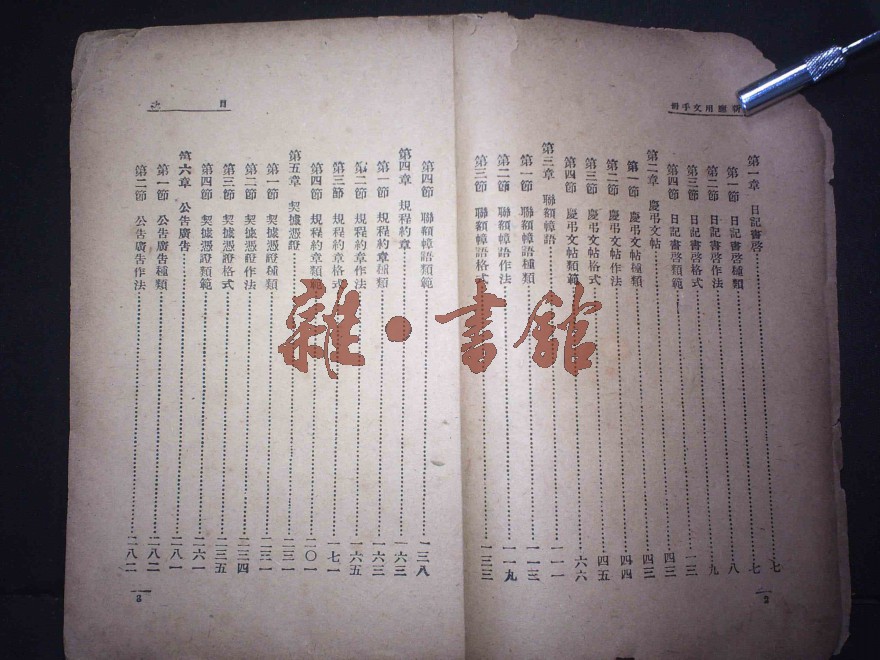 應用文手冊
第一章 日記書啓……七
第一節 日記書啓種類……七
第二節 日記書啓作法……八
第三節 日記書啓格式……九
第四節 日記書啓類範……一三
第二章 慶弔文帖……四三
第一節 慶弔文帖種類……四三
第二節 慶弔文帖作法……四四
第三節 慶弔文帖格式……四五
第四節 慶弔文帖類範……六六
第三章 聯額幛語……一一一
第一節 聯額幛語種類……一一三
第二節 聯額幛語作法……一一九
第三節 聯額幛語格式……一三三
2
目次
第四節 聯額幛語類範……一三八
第四章 規程約章……一六三
第一節 規程約章種類……一六三
第二節 規程約章作法……一六五
第三節 規程約章格式……一七一
第四節 規程約章類範……二〇一
第五章 契據憑證……二三一
第一節 契據憑證種類……二三一
第二節 契據憑證作法……二三四
第三節 契據憑證格式……二三五
第四節 契據憑證類範……二六一
第六章 公告廣告……二八一
第一節 公告廣告種類……二八二
第二節 公告廣告作法……二八二
3
雜·書館